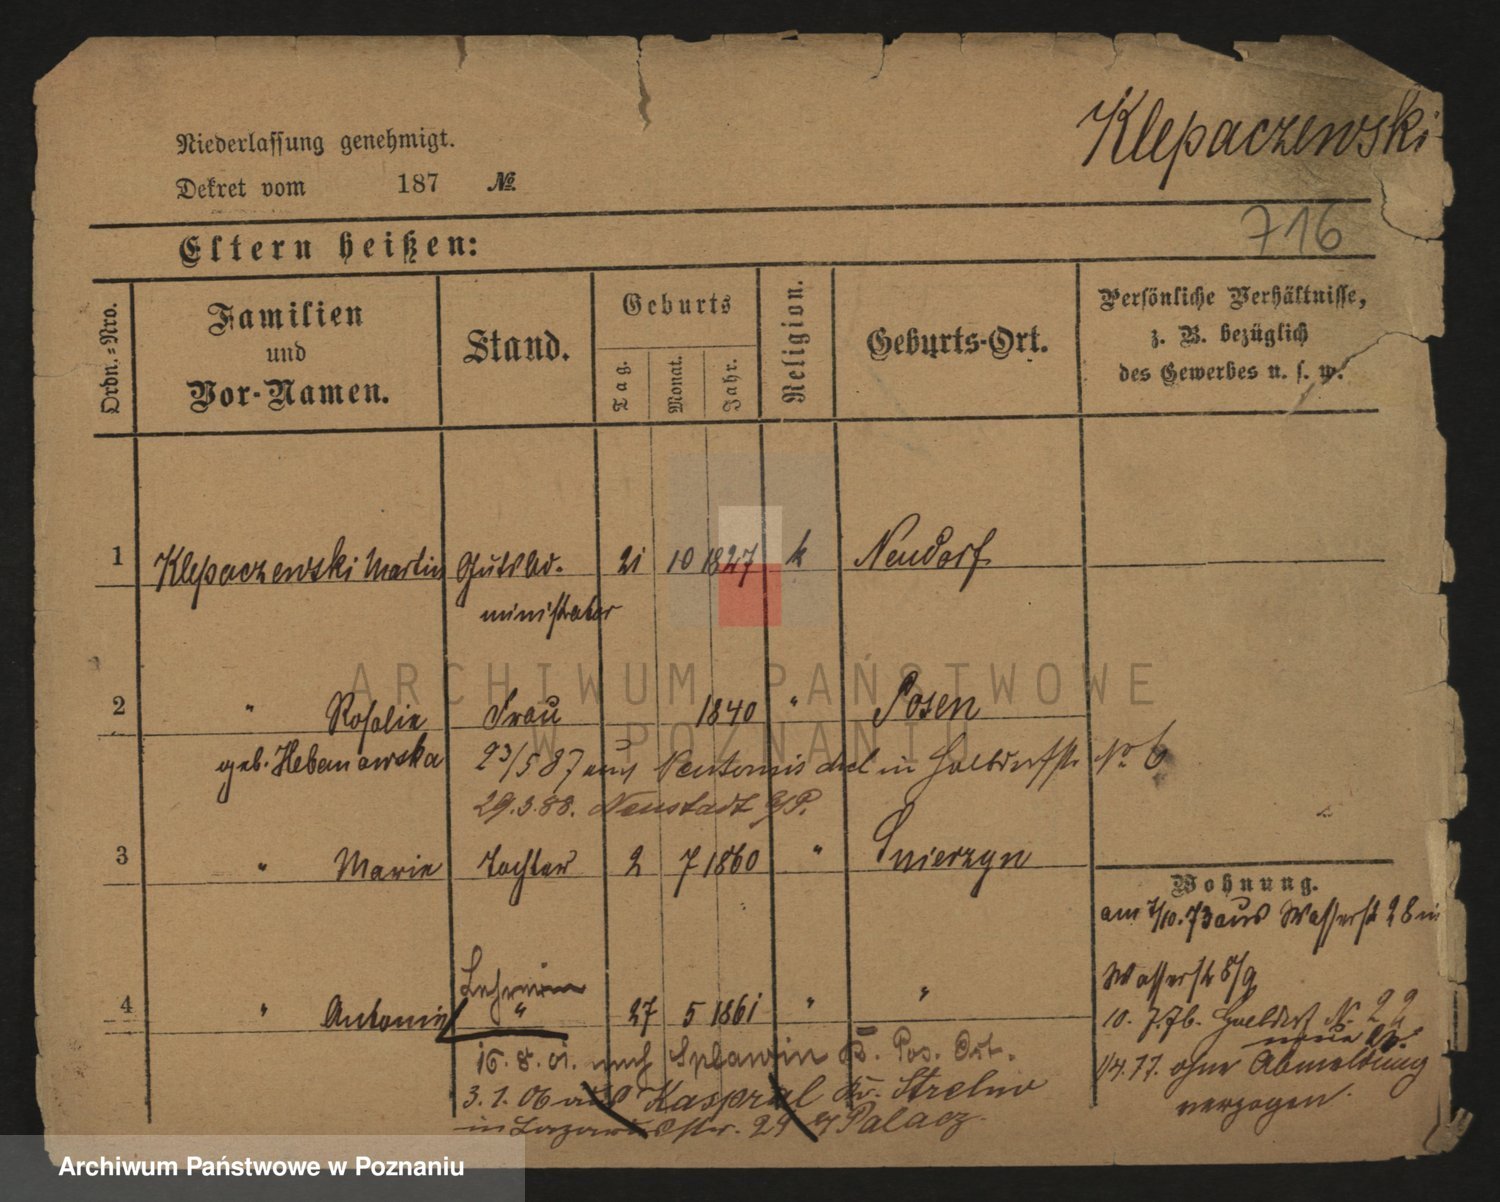 Klepaczewski
Niederlassung genehmigt.
Dekret vom 187 No.
716
Eltern heißen:
Ordn.-Nro.
Familien
und
Vor-Namen.
Stand.
Geburts
Tag.
Monat.
Jahr.
Religion.
Geburts-Ort.
Persönliche Verhältnisse,
z. B. bezüglich
des Gewerbes u. s. w.
1 Klepaczewski Martin Gutsad- 21 10 1827 k Neudorf
ministrator
2 " Rosalie Frau 1840 " Posen
geb. Hebanowska 23/5 87 aus in Halbdorfstr No. 6
29.3.88. Neustadt
3 " Marie Tochter 2 7 1860 " Snierzyn
Wohnung.
am 7/10.73 aus Wasserstr 28 in
Wasserstr 8/9
Lehrerin
4 " Antonie " 27 5 1861 " "
10. 7.76. Halbdorf N. 22
16.8.01. nach Splawin Pos. Ost.
1/4.77. ohne Abmeldung
verzogen.
3.1.06 aus Kasprzal Kr. Strelno
in Lazarusstr. 29 Palacz.
ARCHIWUM PAŃSTWOWE
W POZNANIU
Archiwum Państwowe w Poznaniu